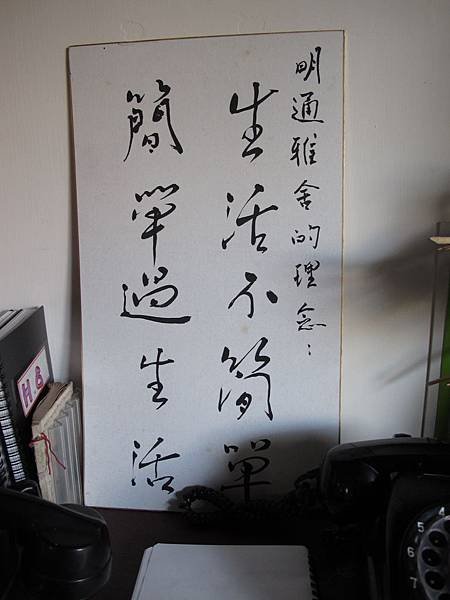 明通雅舍的理念：
生活不簡單
簡單過生活
H.6
5
6
7